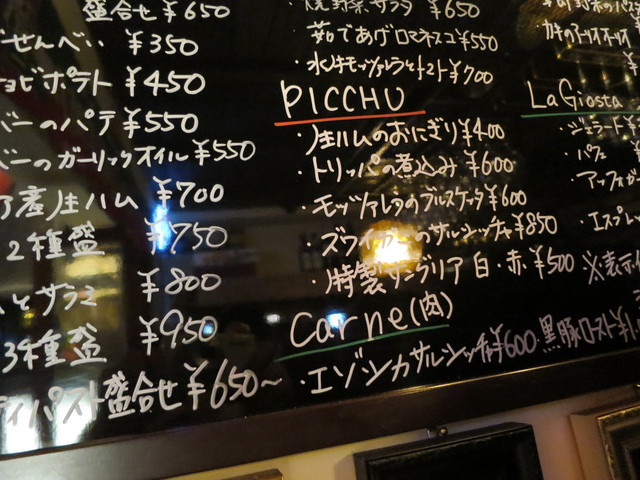 盛合せ ¥650
せんべい ¥350
ョビポテト ¥450
バーのパテ ¥550
バーのガーリックオイル ¥550
ア産生ハム ¥700
2種盛 ¥750
とサラミ ¥800
3種盛 ¥950
パスト盛合せ ¥650〜
焼野菜サラダ ¥650
茹であげロマネスコ ¥550
水牛モッツァレラとトマト ¥700
PICCHU
・生ハムのおにぎり ¥400
・トリッパの煮込み ¥600
・モッツァレラのブルスケッタ ¥600
のサルシッチャ ¥850
・特製サングリア 白・赤 ¥500 ※表示
Carne(肉)
・エゾシカサルシッチャ ¥600
黒豚ロースト ¥1
La Giosta
・ジェラード ¥
・パフェ ¥
・アッフォガ
・エスプレ